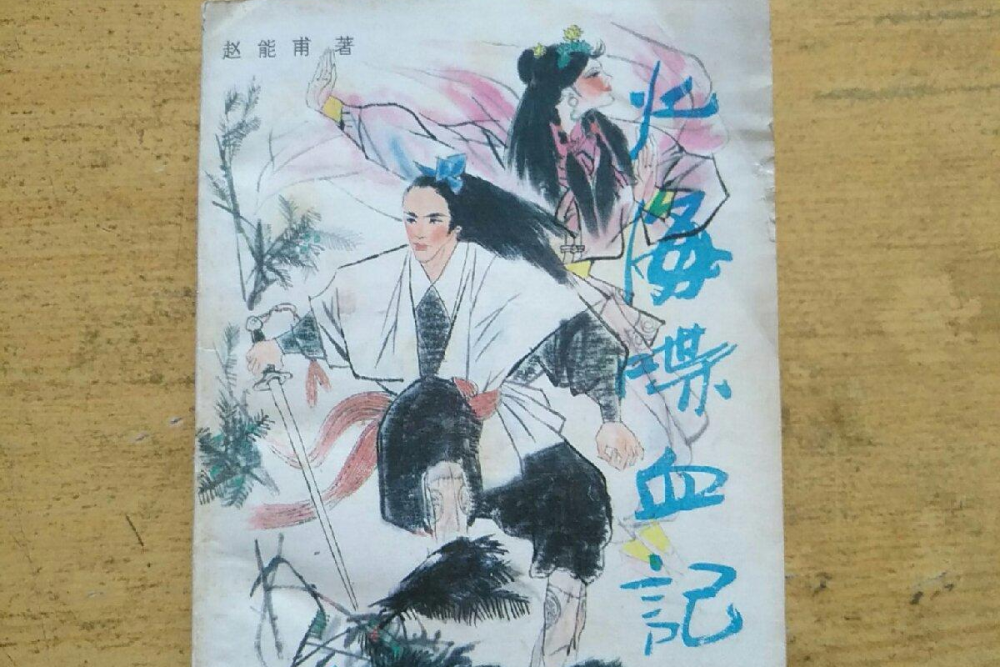 赵能甫著
火海喋血記